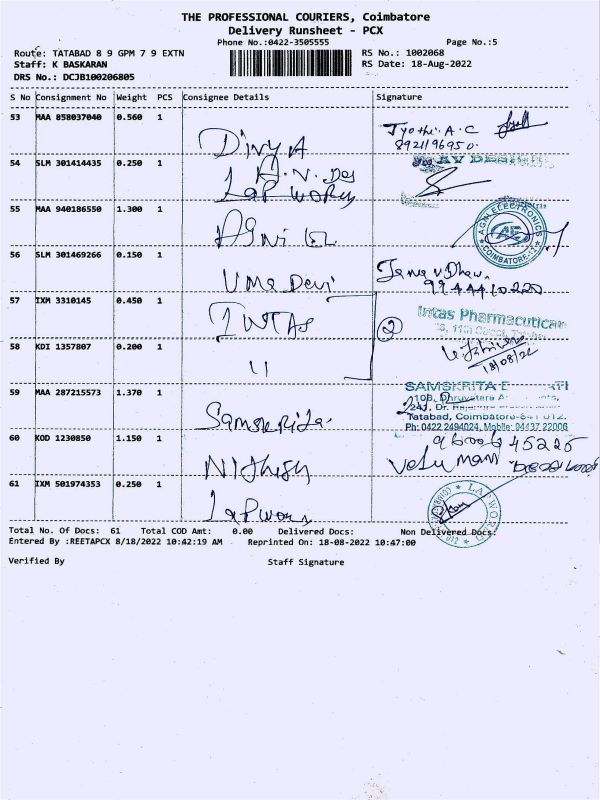 THE PROFESSIONAL COURIERS, Coimbatore
Delivery Runsheet - PCX
Phone No.:0422-3505555
Page No.:5
Route: TATABAD 8 9 GPM 7 9 EXTN
RS No.: 1002068
Staff: K BASKARAN
RS Date: 18-Aug-2022
DRS No.: DCJB100206805
S No Consignment No Weight PCS Consignee Details Signature
53 MAA 858037040 0.560 1
Divy A
Jyothi. A. C
8921196950.
54 SLM 301414435 0.250 1
Lap Works
55 MAA 940186550 1.300 1
Agni
AGNI ELECTRONICS
AE
COIMBATORE-12
56 SLM 301469266 0.150 1
Uma Devi
57 IXM 3310145 0.450 1
INTAS
2
Intas Pharmaceutical
58 KDI 1357807 0.200 1
18/08/22
59 MAA 287215573 1.370 1
Samskrita
SAMSKRITA
Tatabad, Coimbatore-641 012.
Ph: 0422 2494024, Mobile: 04437 22006
60 KOD 1230850 1.150 1
Nithish
Velu mani
61 IXM 501974353 0.250 1
Lap works
LAPWOR
Total No. Of Docs: 61 Total COD Amt: 0.00 Delivered Docs: Non Delivered Docs:
Entered By :REETAPCX 8/18/2022 10:42:19 AM . Reprinted On: 18-08-2022 10:47:00
Verified By Staff Signature